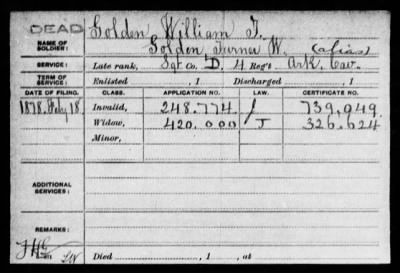 DEAD
Golden William T.
NAME OF SOLDIER:
Golden Turner W. (alias)
SERVICE: Late rank, Sgt Co. D. 4 Reg't. Ark. Cav.
TERM OF SERVICE: Enlisted , 1 Discharged , 1
DATE OF FILING. CLASS. APPLICATION NO. LAW. CERTIFICATE NO.
1878. Feby 18. Invalid, 248.774 J 739.049
Widow, 420.000 J 326.624
Minor,
ADDITIONAL SERVICES:
REMARKS:
Died , 1 , at